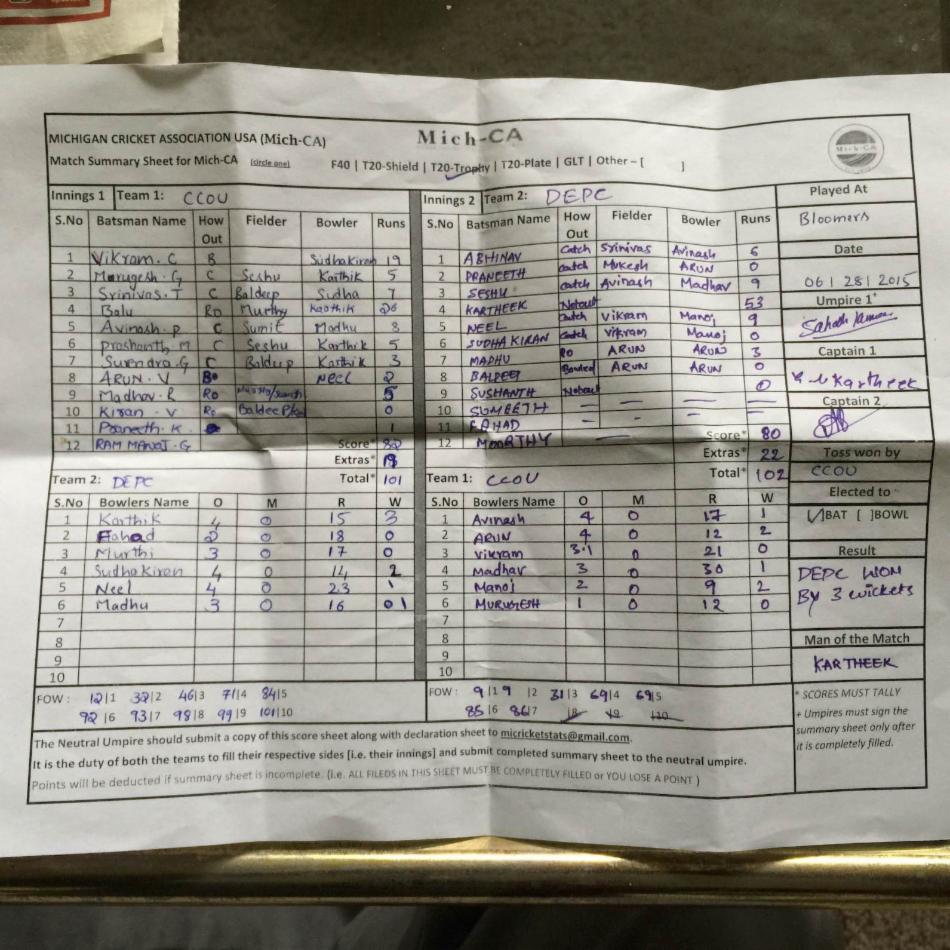 MICHIGAN CRICKET ASSOCIATION USA (Mich-CA)
Mich-CA
Mich-CA
Match Summary Sheet for Mich-CA (circle one) F40 | T20-Shield | T20-Trophy | T20-Plate | GLT | Other – [ ]
Innings 1 Team 1: CCOU
S.No Batsman Name How Out Fielder Bowler Runs
1 Vikram. C B Sudhakiran 19
2 Murugesh. G C Seshu Karthik 5
3 Srinivas. T C Baldeep Sudha 7
4 Balu Ro Murthy Karthik 26
5 Avinash. P C Sumit Madhu 8
6 Prashanth. M C Seshu Karthik 5
7 Surendra. G C Baldeep Karthik 3
8 ARUN. V Neel 2
9 Madhav. R Ro 5
10 Kiran. V Ro 0
11 Praneeth. K 1
12 RAM MANOJ. G
Score* 82
Extras* 19
Total* 101
Innings 2 Team 2: DEPC
S.No Batsman Name How Out Fielder Bowler Runs
1 ABHINAV Catch Srinivas Avinash 6
2 PRANEETH Catch Mukesh ARUN 0
3 SESHU Catch Avinash Madhav 9
4 KARTHEEK Notout 53
5 NEEL Catch Vikram Manoj 9
6 SUDHA KIRAN Catch Vikram Manoj 0
7 MADHU Ro ARUN ARUN 3
8 BALDEEP Bowled ARUN ARUN 0
9 SUSHANTH Notout 0
10 SUMEETH – – –
11 FAHAD – – –
12 MOORTHY –
Score* 80
Extras* 22
Total* 102
Team 2: DEPC
S.No Bowlers Name O M R W
1 Karthik 4 0 15 3
2 Fahad 2 0 18 0
3 Murthi 3 0 17 0
4 Sudhakiran 4 0 14 2
5 Neel 4 0 23 1
6 Madhu 3 0 16 01
7
8
9
10
FOW : 12|1 32|2 46|3 71|4 84|5
92|6 93|7 98|8 99|9 101|10
Team 1: CCOU
S.No Bowlers Name O M R W
1 Avinash 4 0 17 1
2 ARUN 4 0 12 2
3 Vikram 3.1 0 21 0
4 Madhav 3 0 30 1
5 Manoj 2 0 9 2
6 MURUGESH 1 0 12 0
7
8
9
10
FOW : 9|1 9 |2 31|3 69|4 69|5
85|6 86|7 |8 |9 |10
Played At
Bloomers
Date
06 | 28 | 2015
Umpire 1+
Captain 1
Kartheek
Captain 2
Toss won by
CCOU
Elected to
[✓]BAT [ ]BOWL
Result
DEPC WON
BY 3 wickets
Man of the Match
KARTHEEK
* SCORES MUST TALLY
+ Umpires must sign the
summary sheet only after
it is completely filled.
The Neutral Umpire should submit a copy of this score sheet along with declaration sheet to micricketstats@gmail.com.
It is the duty of both the teams to fill their respective sides [i.e. their innings] and submit completed summary sheet to the neutral umpire.
Points will be deducted if summary sheet is incomplete. (i.e. ALL FILEDS IN THIS SHEET MUST BE COMPLETELY FILLED or YOU LOSE A POINT )